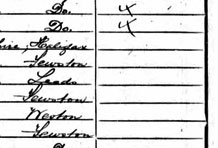 Do. 4
Do. 4
Halifax
Sewston
Leeds
Sewston
Weston
Sewston